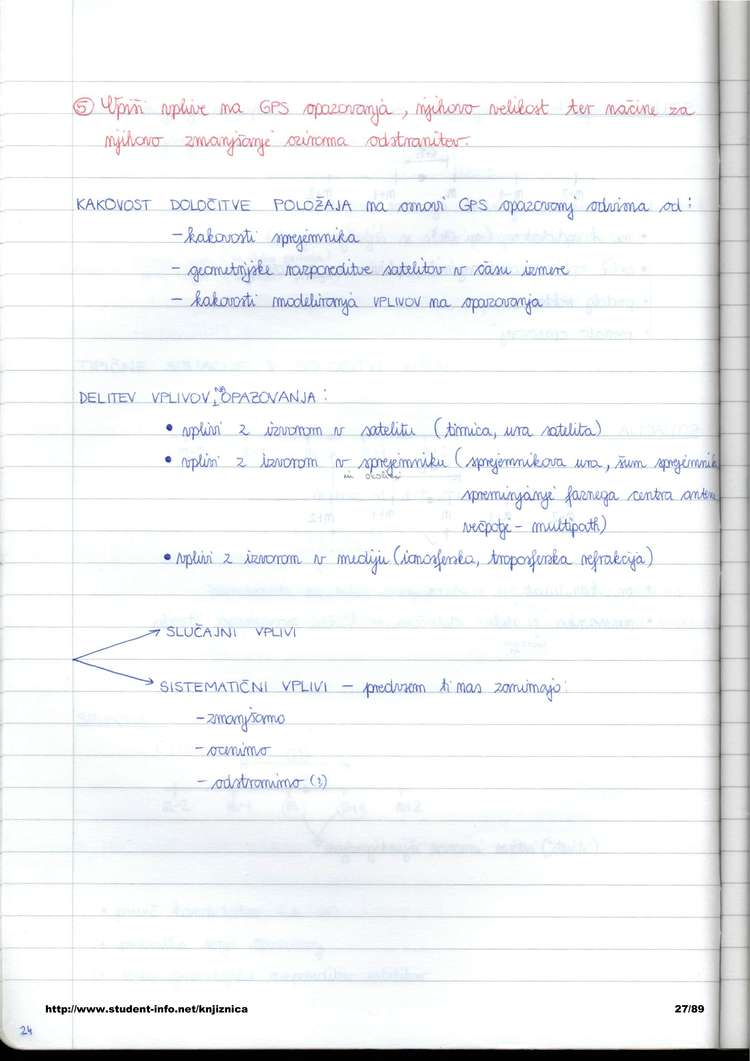 ⑤ Opiši vplive na GPS opazovanja, njihovo velikost ter načine za
njihovo zmanjšanje oziroma odstranitev.
KAKOVOST DOLOČITVE POLOŽAJA na osnovi GPS opazovanj odvisna od:
- kakovosti sprejemnika
- geometrijske razporeditve satelitov v času izmere
- kakovosti modeliranja VPLIVOV na opazovanja
DELITEV VPLIVOV NA OPAZOVANJA:
• vplivi z izvorom v satelitu (tirnica, ura satelita)
• vplivi z izvorom v sprejemniku (sprejemnikova ura, šum sprejemnika
in okolici
spreminjanje faznega centra antene
večpotje - multipath)
• vplivi z izvorom v mediju (ionosferska, troposferska refrakcija)
SLUČAJNI VPLIVI
SISTEMATIČNI VPLIVI - predvsem ti nas zanimajo:
- zmanjšamo
- ocenimo
- odstranimo (?)
http://www.student-info.net/knjiznica
27/89
24